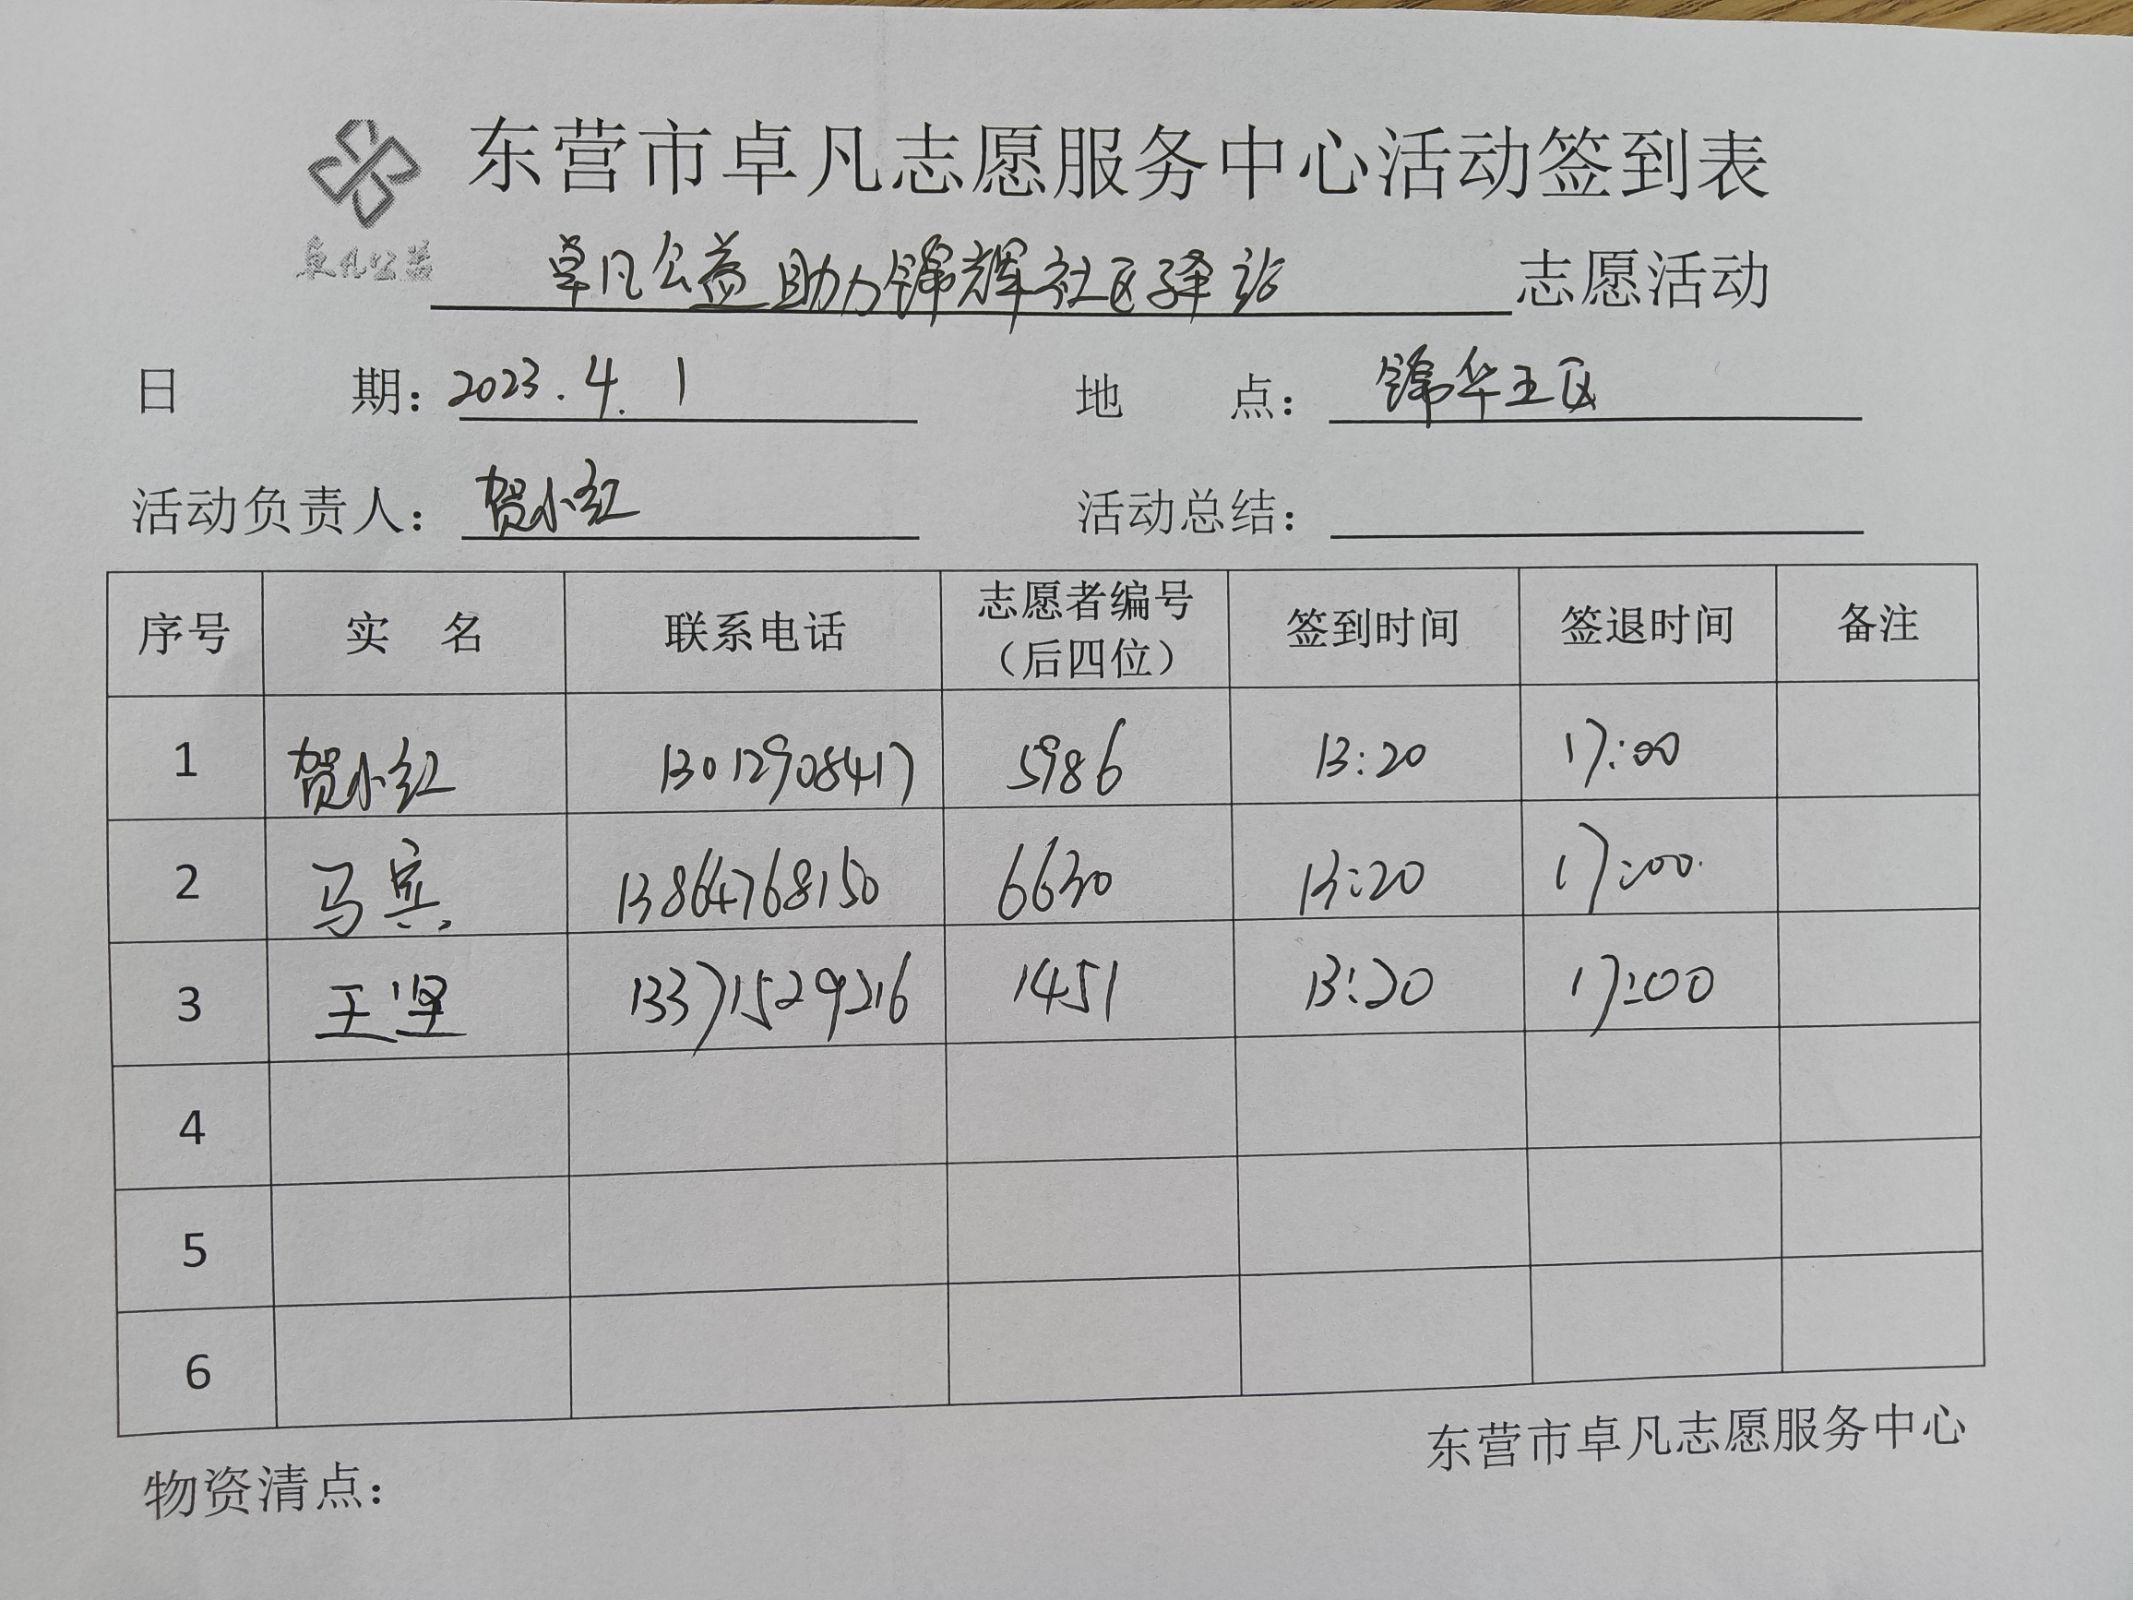 东营市卓凡志愿服务中心活动签到表
卓凡公益
卓凡公益助力锦辉社区驿站 志愿活动
日 期：2023.4.1 地 点：锦华五区
活动负责人：贺小红 活动总结：
序号 实 名 联系电话 志愿者编号（后四位） 签到时间 签退时间 备注
1 贺小红 13012908417 5986 13:20 17:00
2 马宾 13864768150 6630 13:20 17:00
3 王坚 13371529216 1451 13:20 17:00
4
5
6
东营市卓凡志愿服务中心
物资清点：